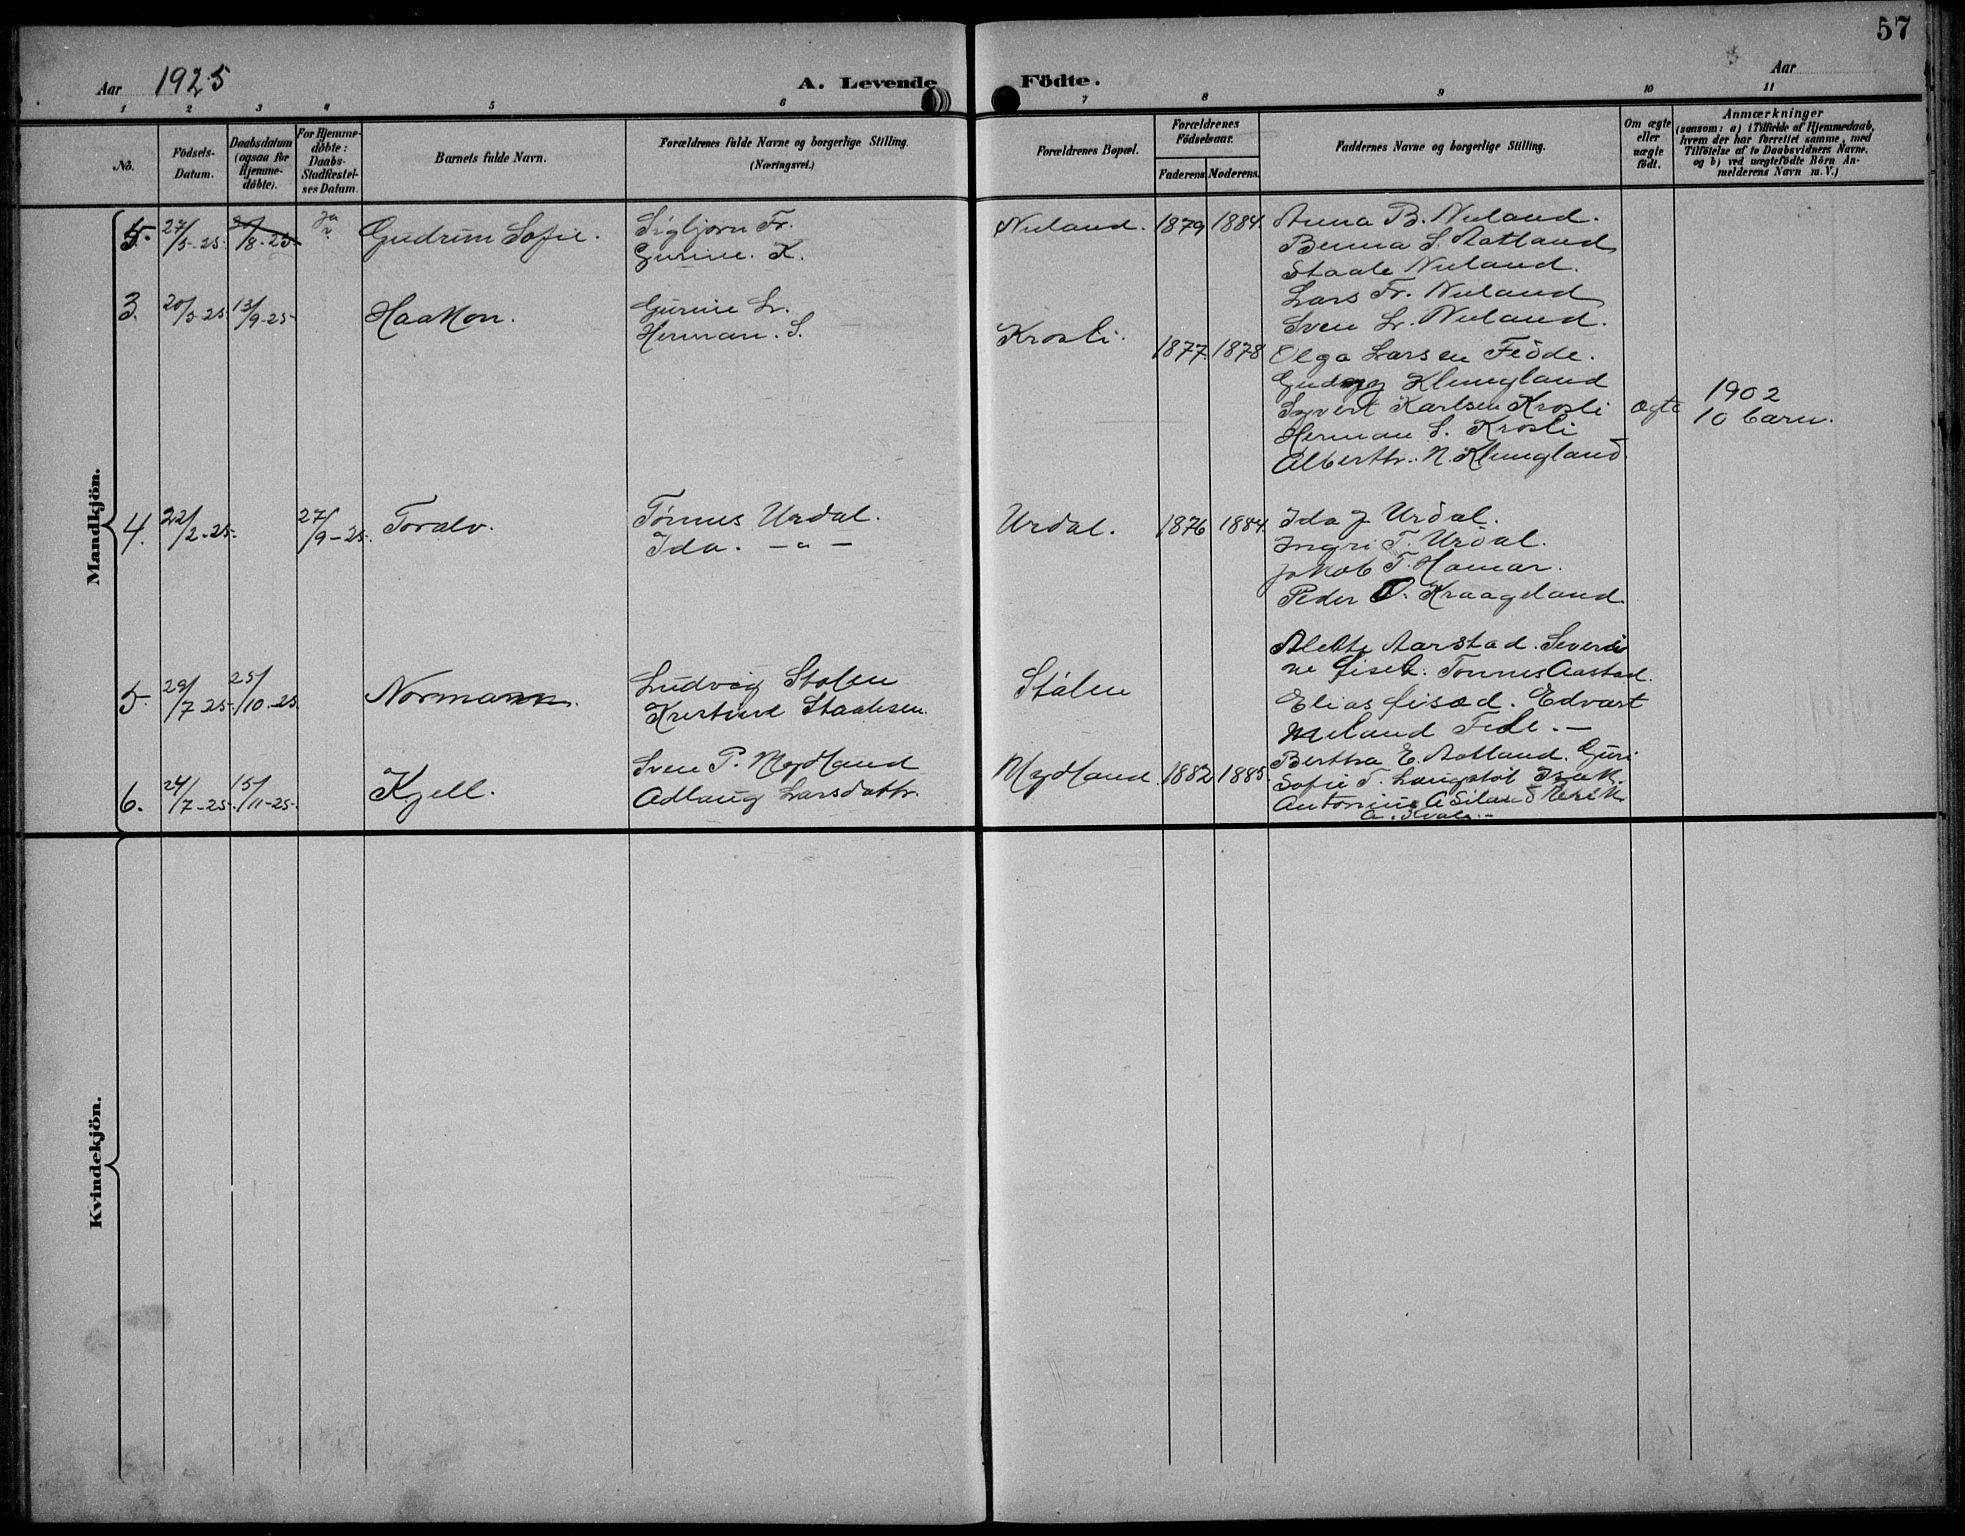 57
Aar 1925
A. Levende Födte.
Aar
1 2 3 4 5 6 7 8 9 10 11
No.
Födsels-Datum.
Daabsdatum (ogsaa for Hjemme-döbte).
For Hjemme-döbte: Daabs-Stadfæstel-ses Datum.
Barnets fulde Navn.
Forældrenes fulde Navne og borgerlige Stilling.
(Næringsvei.)
Forældrenes Bopæl.
Forældrenes Födselsaar.
Faderens Moderens.
Faddernes Navne og borgerlige Stilling.
Om ægte eller uægte födt.
Anmærkninger
(saasom: a) i Tilfælde af Hjemmedaab,
hvem der har forrettet samme, med
Tilföielse af to Daabsvidners Navne,
og b) ved uægtefödte Börn An-
melderens Navn m. V.)
Mandkjön.
5. 27/5-25. /8-25 Gudrun Sofie. Sigbjørn Fr. Nuland. 1879 1884. Anna B. Nuland.
Gurine. K. Benna S. Aatland
Staale Nuland.
Lars Fr. Nuland
Sven Lr. Nuland.
3. 20/5-25 13/9-25- Haakon. Gurine Lr.
Herman. S. Krosli. 1877. 1878 Olga Larsen Fede.
Klungland
Syvert Karlsen Krosli ægte 1902
Herman S. Krosli 10 barn.
Alberttr. N. Klungland.
4. 22/2-25- 27/9-25. Toralv. Tønnes Urdal. Urdal. 1876 1884. Ida J Urdal.
Ida. -"- Ingri T. Urdal.
Jakob T. Hamar.
Peder O. Kraageland.
5. 29/7 25- 25/10-25. Normann. Ludvig Stølen Stølen Alette Aarstad. Severi
Kristine Staalesen. ne Tønnes Aastad.
Elias Edvart
Meland Fede. -
6. 24/7-25- 15/11-25- Kjell. Sven P. Mydland Mydland 1882 1885. Bertha E. Aatland. Guri
Adlaug Larsdattr. Sofie T. Langstøl Isak.
Antonius A
Kvindekjön.